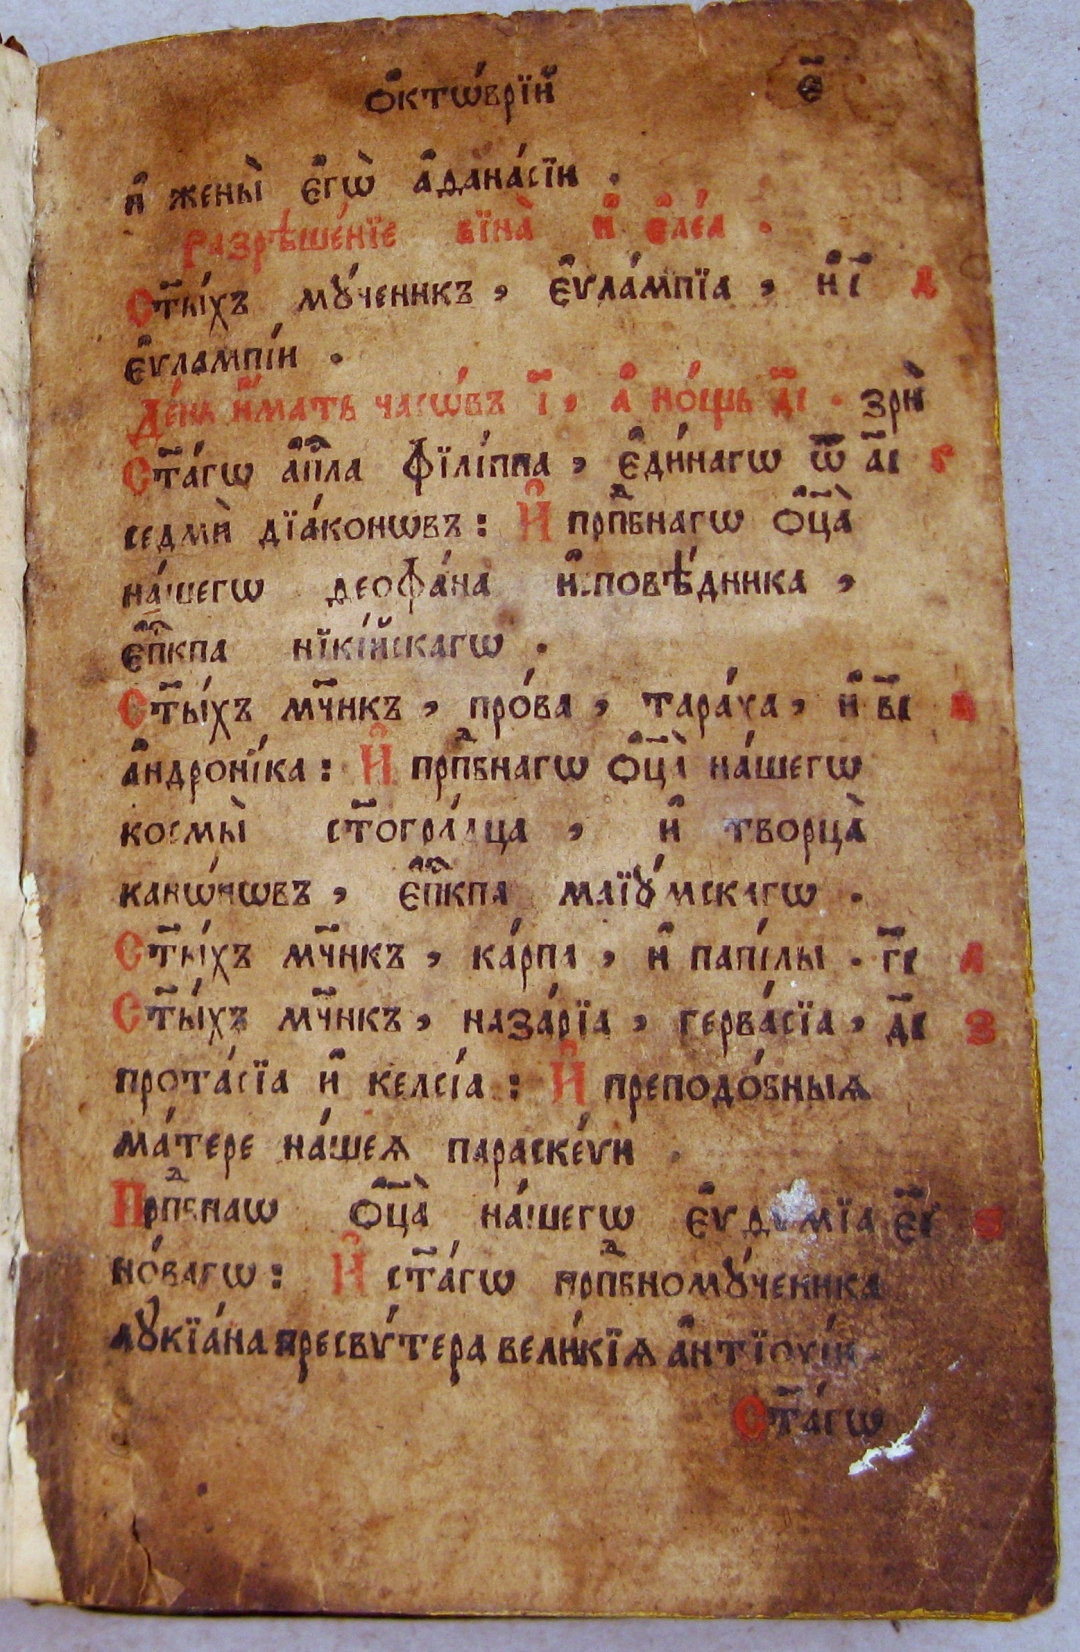 Ѻ҆ктѡ́врїй є҃
и҆ жены̀ є҆гѡ̀ а҆ѳана́сїи .
разрѣше́нїе вїна̀ и҆ є҆ле́а .
С҃ты́хъ мꙋ́ченикъ , є҆ѵла́мпїа , и҆ і҃ д
є҆ѵлампі́и .
Де́нь и҆́мать часѡ́въ і҃ , а҆ но́щь д҃і . зрѝ
Ст҃а́гѡ а҆п҃ла фїлі́ппа , є҆ди́нагѡ ѿ а҃і г
седмѝ дїа́конѡвъ : И҆ прпⷣбнагѡ ѻ҆ц҃а̀
на́шегѡ ѳеофа́на и҆сповѣ́дника ,
є҆п҃кпа нїкі́йскагѡ .
Ст҃ы́хъ мч҃нкъ , про́ва , тара́ха , и҆ в҃і
а҆ндроні́ка : И҆ прпⷣбнагѡ ѻ҆ц҃а̀ на́шегѡ
космы̀ ст҃огра́дца , и҆ творца̀
канѡ́нѡвъ , є҆п҃кпа маїꙋ́мскагѡ .
Ст҃ы́хъ мч҃нкъ , ка́рпа , и҆ папі́лы . г҃і
Ст҃ы́хъ мч҃нкъ , наза́рїа , герва́сїа , д҃і з
прота́сїа и҆ келсі́а : И҆ преподо́бныѧ
ма́тере на́шеѧ параске́ѵи .
Прпⷣбнаѡ ѻ҆ц҃а̀ на́шегѡ є҆ѵѳѵ́мїа є҃і
но́вагѡ : И҆ ст҃а́гѡ прпⷣбномꙋ́ченика
лꙋкїа́на пресвѵ́тера вели́кїѧ а҆нтїохі́и .
Ст҃а́гѡ